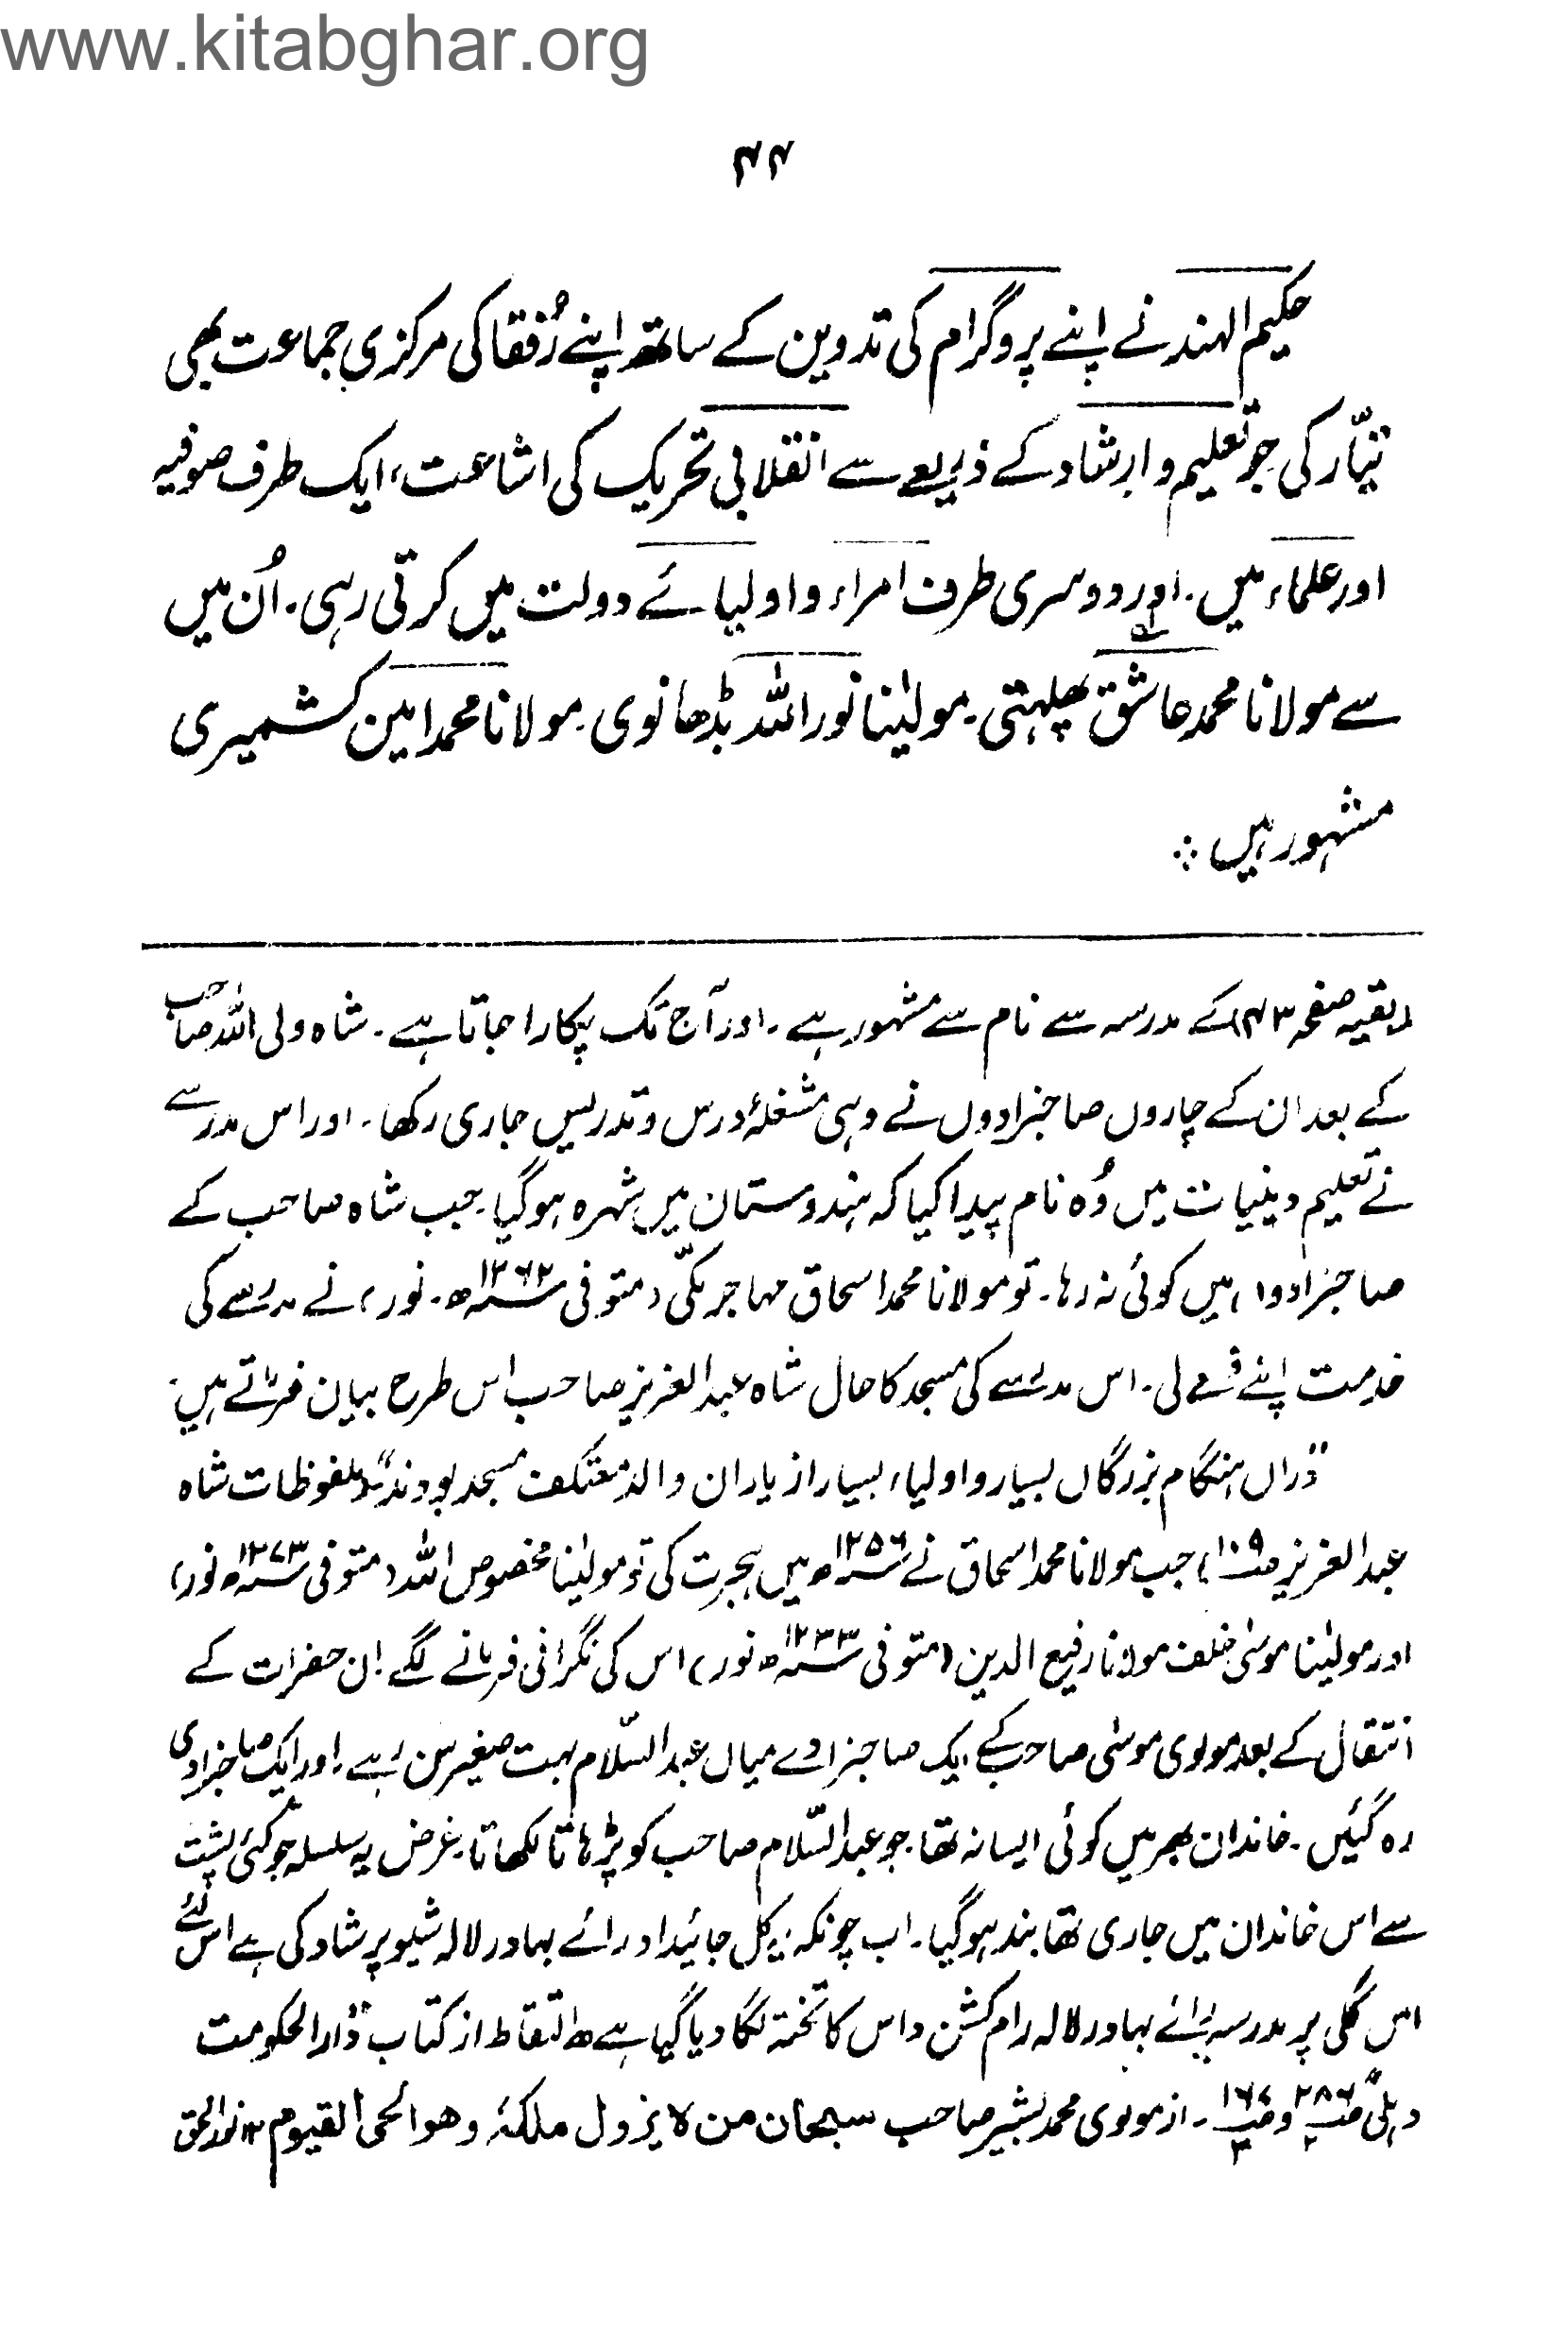 www.kitabghar.org
۴۴
حکیم الہند نے اپنے پروگرام کی تدوین کے ساتھ اپنے رُفقا کی مرکزی جماعت بھی
تیّار کی جو تعلیم و ارشاد کے ذریعے سے انقلابی تحریک کی اشاعت، ایک طرف صوفیہ
اور علماء میں۔ اور دوسری طرف امراء و اولیائے دولت میں کرتی رہی۔ اُن میں
سے مولانا محمد عاشق پھلہتی۔ مولینٰا نور اللہ بڈھانوی۔ مولانا محمد امین کشمیری
مشہور ہیں ؞
(بقیہ صفحہ ۴۳) کے مدرسہ سے نام سے مشہور ہے۔ اور آج تک پکارا جاتا ہے۔ شاہ ولی اللہ صاحب
کے بعد ان کے چاروں صاحبزادوں نے وہی مشغلۂ درس و تدریس جاری رکھا۔ اور اس مدرسے
نے تعلیم دینیات میں وُہ نام پیدا کیا کہ ہندوستان میں شہرہ ہوگیا۔ جب شاہ صاحب کے
صاحبزادوں میں کوئی نہ رہا۔ تو مولانا محمد اسحاق مہاجر مکّی (متوفی ۱۲۶۲ھ۔ نور) نے مدرسے کی
خدمت اپنے ذمے لی۔ اس مدرسے کی مسجد کا حال شاہ عبد العزیز صاحب اس طرح بیان فرماتے ہیں:
"دراں ہنگام بزرگاں بسیار و اولیاء بسیار از یاران والد معتکف مسجد بودند" (ملفوظات شاہ
عبد العزیز صفحہ ۱۰۹) جب مولانا محمد اسحاق نے ۱۲۵۶ھ میں ہجرت کی تو مولینٰا مخصوص اللہ (متوفی ۱۲۷۳ھ نور)
اور مولینٰا موسٰی خلف مولانا رفیع الدین (متوفی ۱۲۳۳ھ نور) اس کی نگرانی فرمانے لگے۔ ان حضرات کے
انتقال کے بعد مولوی موسٰی صاحب کے ایک صاحبزادے میاں عبد السّلام بہت صغیر سن رہے۔ اور ایک صاحبزادی
رہ گئیں۔ خاندان بھر میں کوئی ایسا نہ تھا۔ جو عبد السّلام صاحب کو پڑہاتا لکھاتا۔ غرض یہ سلسلہ جو کئی پشت
سے اس خاندان میں جاری تھا بند ہوگیا۔ اب چونکہ یہ کل جائیداد رائے بہادر لالہ شیو پرشاد کی ہے اس لئے
اس گلی پر مدرسہ رائے بہادر لالہ رام کشن داس کا تختہ لگا دیا گیا ہے ھ التقاط از کتاب "دارالحکومت
دہلی" ص ۲۸۶/۲ و ص ۱۶۷/۳۔ از مولوی محمد بشیر صاحب سبحان من لا یزول ملکہٗ وھو الحی القیوم ۱۲ نور الحق